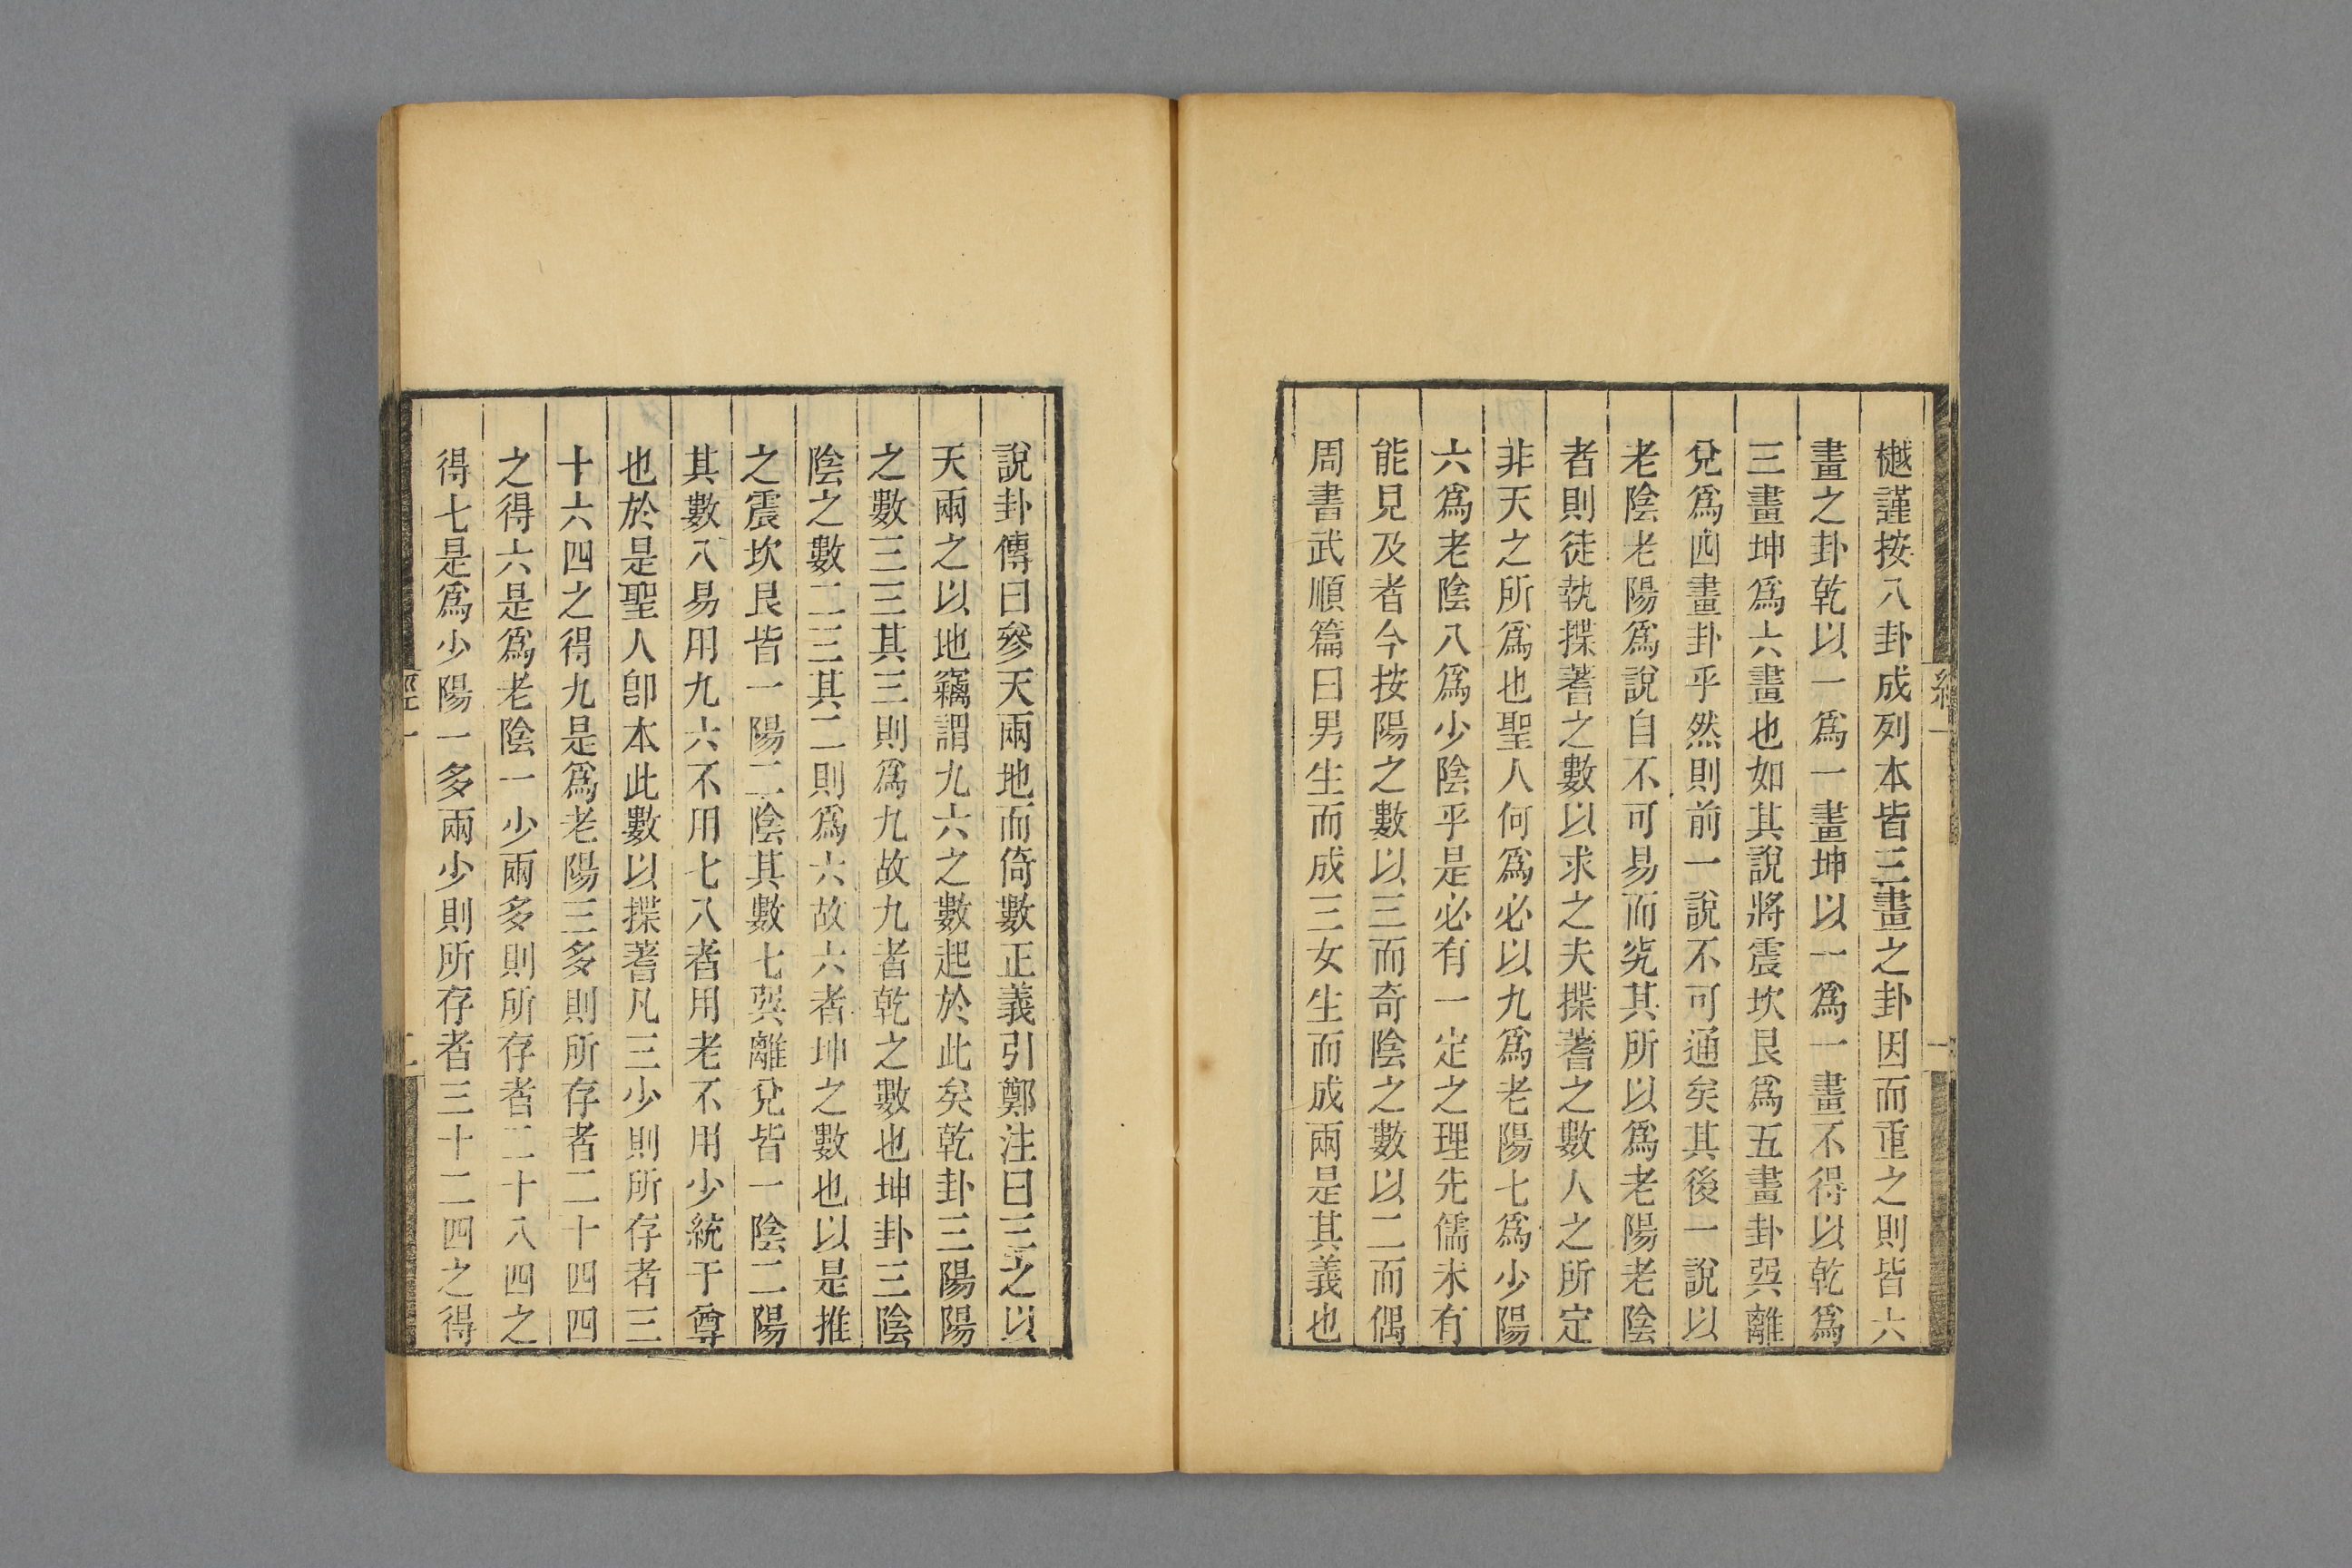 樾謹按八卦成列本皆三畫之卦因而重之則皆六
畫之卦乾以一爲一畫坤以一爲一畫不得以乾爲
三畫坤爲六畫也如其說將震坎艮爲五畫卦巽離
兌爲四畫卦乎然則前一說不可通矣其後一說以
老陰老陽爲說自不可易而究其所以爲老陽老陰
者則徒執揲蓍之數以求之夫揲蓍之數人之所定
非天之所爲也聖人何爲必以九爲老陽七爲少陽
六爲老陰八爲少陰乎是必有一定之理先儒未有
能見及者今按陽之數以三而奇陰之數以二而偶
周書武順篇曰男生而成三女生而成兩是其義也
說卦傳曰參天兩地而倚數正義引鄭注曰三之以
天兩之以地竊謂九六之數起於此矣乾卦三陽陽
之數三三其三則爲九故九者乾之數也坤卦三陰
陰之數二三其二則爲六故六者坤之數也以是推
之震坎艮皆一陽二陰其數七巽離兌皆一陰二陽
其數八易用九六不用七八者用老不用少統于尊
也於是聖人卽本此數以揲蓍凡三少則所存者三
十六四之得九是爲老陽三多則所存者二十四四
之得六是爲老陰一少兩多則所存者二十八四之
得七是爲少陽一多兩少則所存者三十二四之得
經一
二